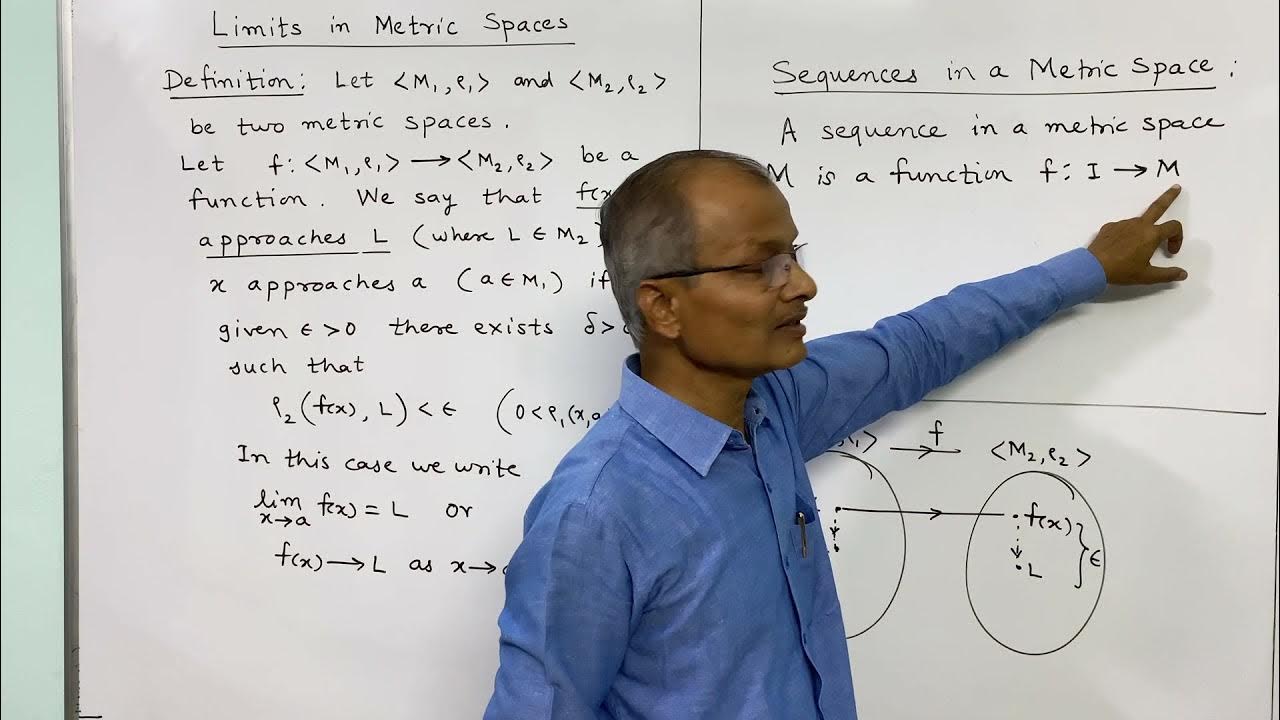 Limits in Metric Spaces
Definition: Let <M₁, ρ₁> and <M₂, ρ₂>
be two metric spaces.
Let f: <M₁, ρ₁> → <M₂, ρ₂> be a
function. We say that f(x
approaches L (where L ∈ M₂)
x approaches a (a ∈ M₁) if
given ε > 0 there exists δ >
such that
ρ₂(f(x), L) < ε (0 < ρ₁(x, a
In this case we write
lim x→a f(x) = L or
f(x) → L as x →
Sequences in a Metric Space:
A sequence in a metric space
M is a function f: I → M
ρ₁> f <M₂, ρ₂>
f(x)
ε
L